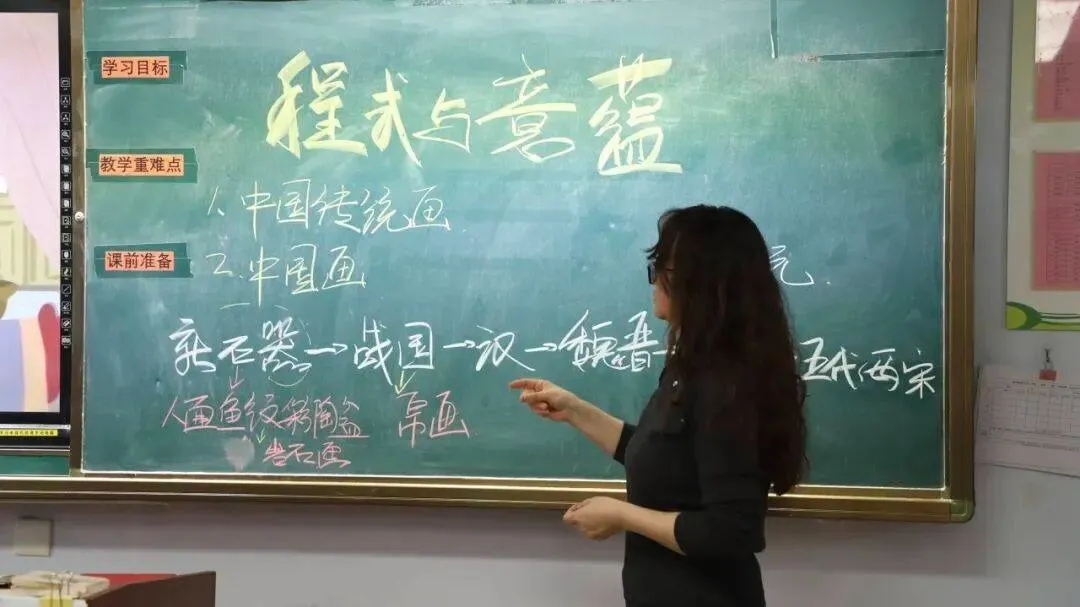 学习目标
程式与意蕴
教学重难点
1、中国传统画
课前准备
2、中国画
新石器→战国→汉→魏晋
五代两宋
人面鱼纹彩陶盆
帛画
岩石画